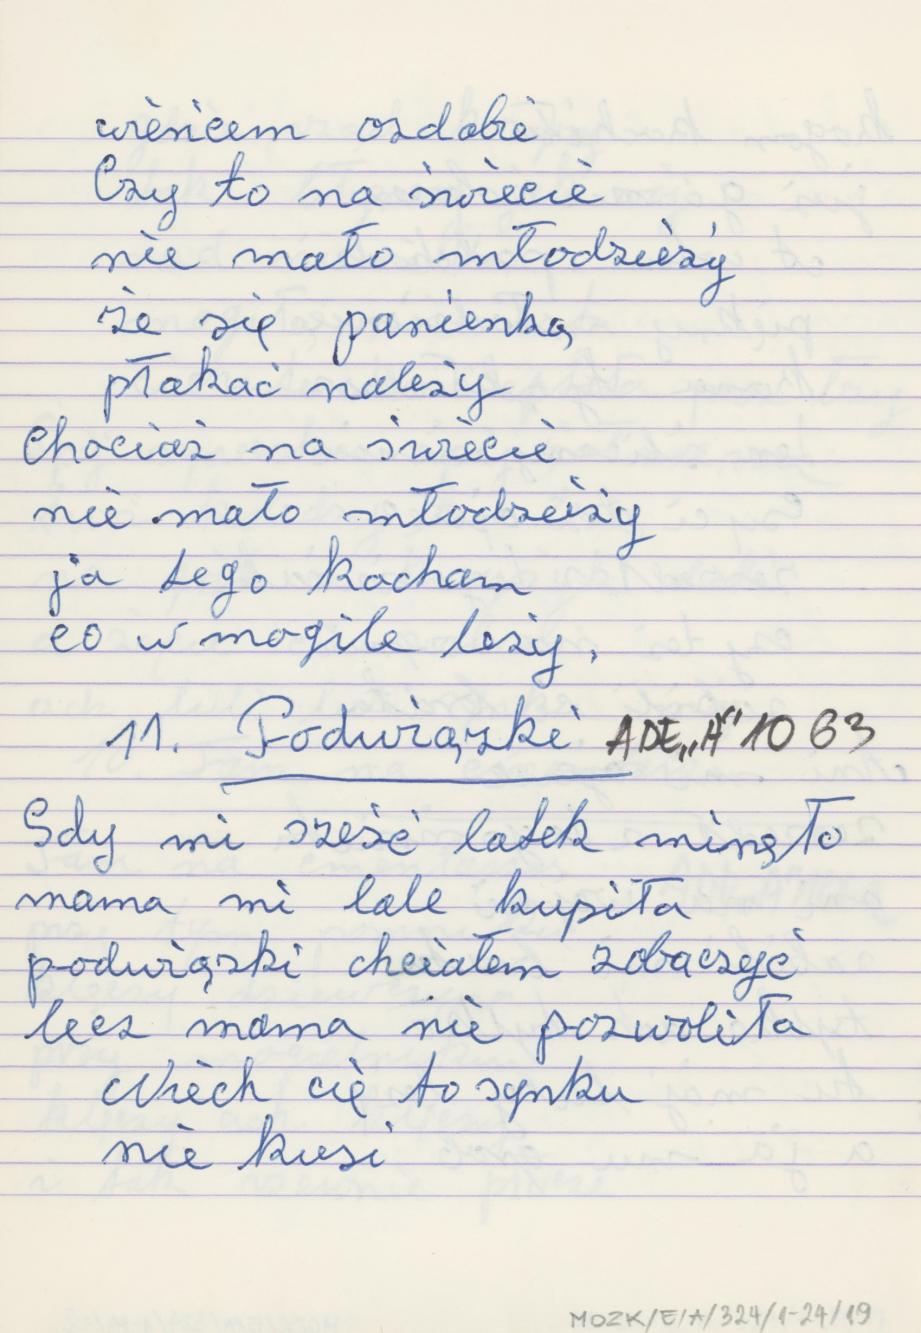 wieńcem ozdobie
Czy to na świecie
nie mało młodzieży
że się panienką
płakać należy
Chociaż na świecie
nie mało młodzieży
ja tego kocham
co w mogile leży.
11. Podwiązki ADE„A" 1063
Gdy mi sześć latek minęło
mama mi lale kupiła
podwiązki chciałem zobaczyć
lecz mama nie pozwoliła
Niech cię to synku
nie kusi
MOZK/E/A/324/1-24/19